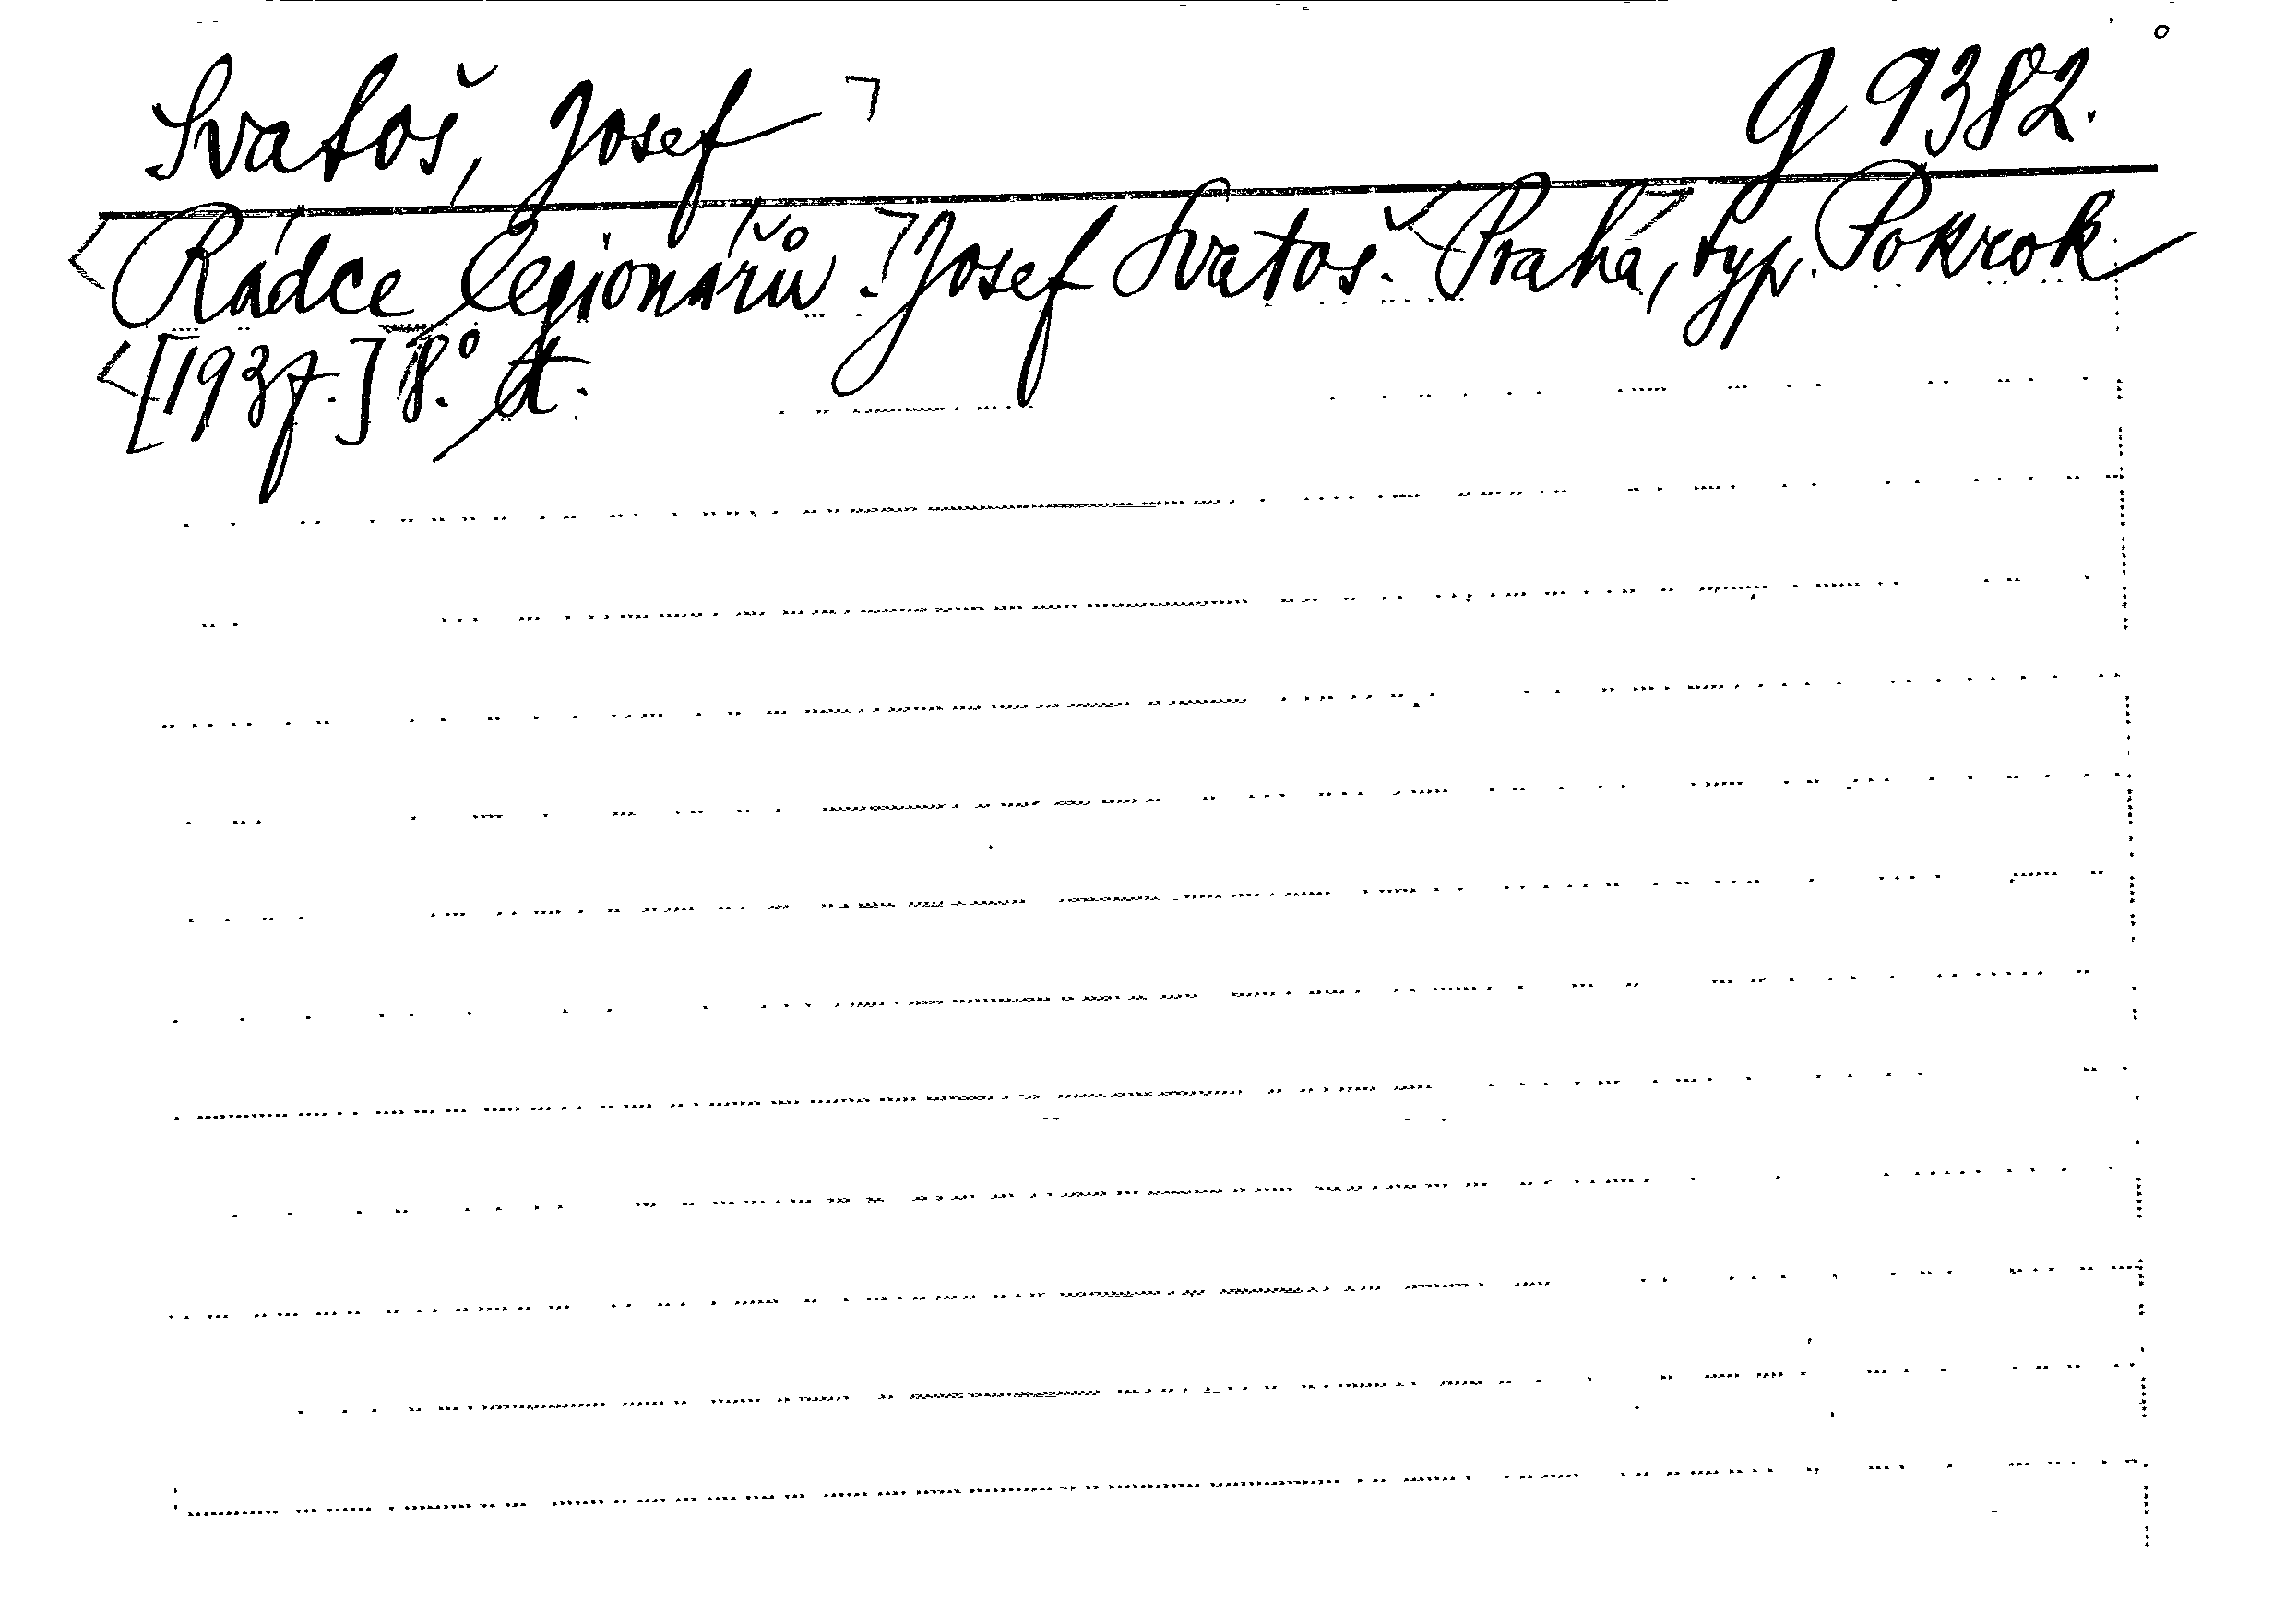 Svatoš, Josef g 9382.
Rádce legionářů. Josef Svatoš. Praha, typ. Pokrok
[1937.] 8.°